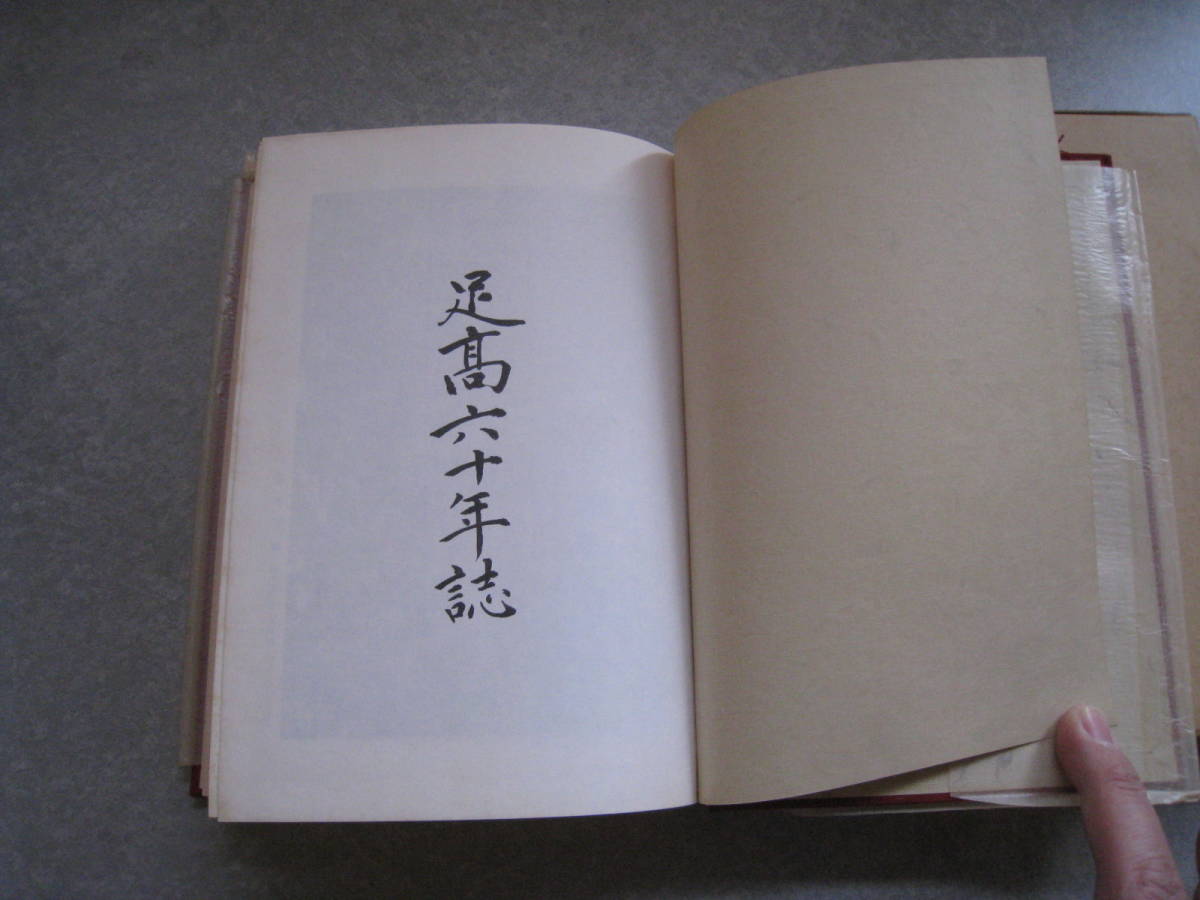 足髙六十年誌